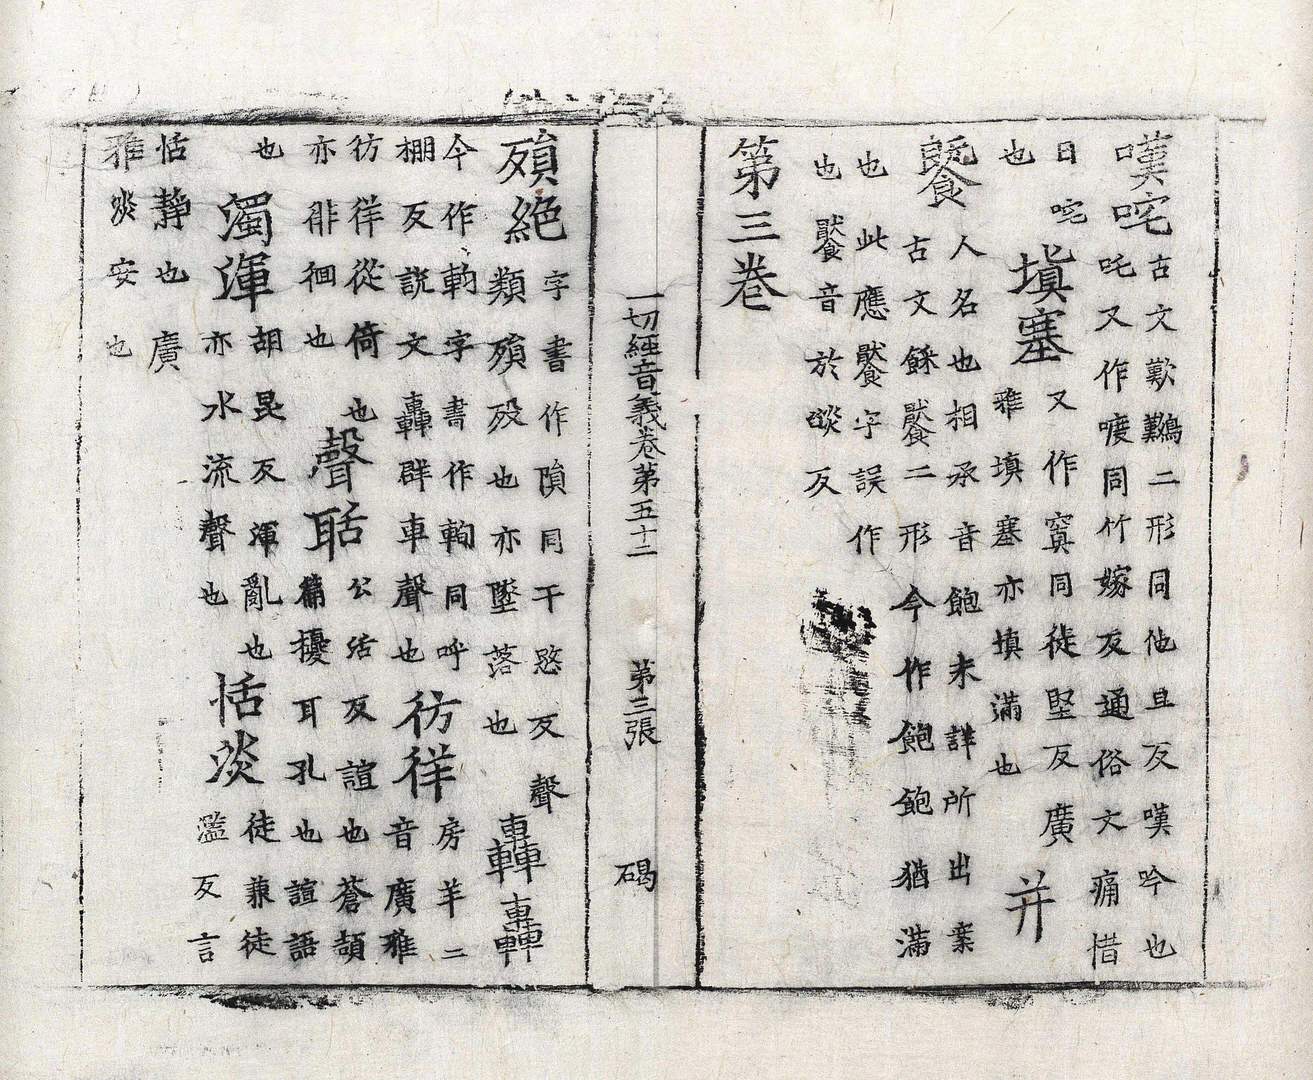 嘆咤古文歎鷬二形同他且反嘆吟也
吒又作喥同竹嫁反通俗文痛惜
曰咤
也
塡塞又作窴同徒堅反廣
雅填塞亦填滿也
并
人名也相承音飽未詳所出葉
古文二形今作飽飽猶滿
也此應字誤作
也音於焰反
第三卷
一切經音義卷第五十二 第三張 碣
殞絕字書作隕同于愍反聲
類殞歿也亦墜落也
轟轟
今作字書作輷同呼
棚反說文轟群車聲也
彷徉房羊二
音廣雅
彷徉從倚也
亦徘徊也
聲聒公活反諠也蒼頡
篇擾耳孔也諠語
也
濁渾胡昆反渾亂也
亦水流聲也
恬淡徒兼徒
濫反言
恬靜也廣
雅惔安也